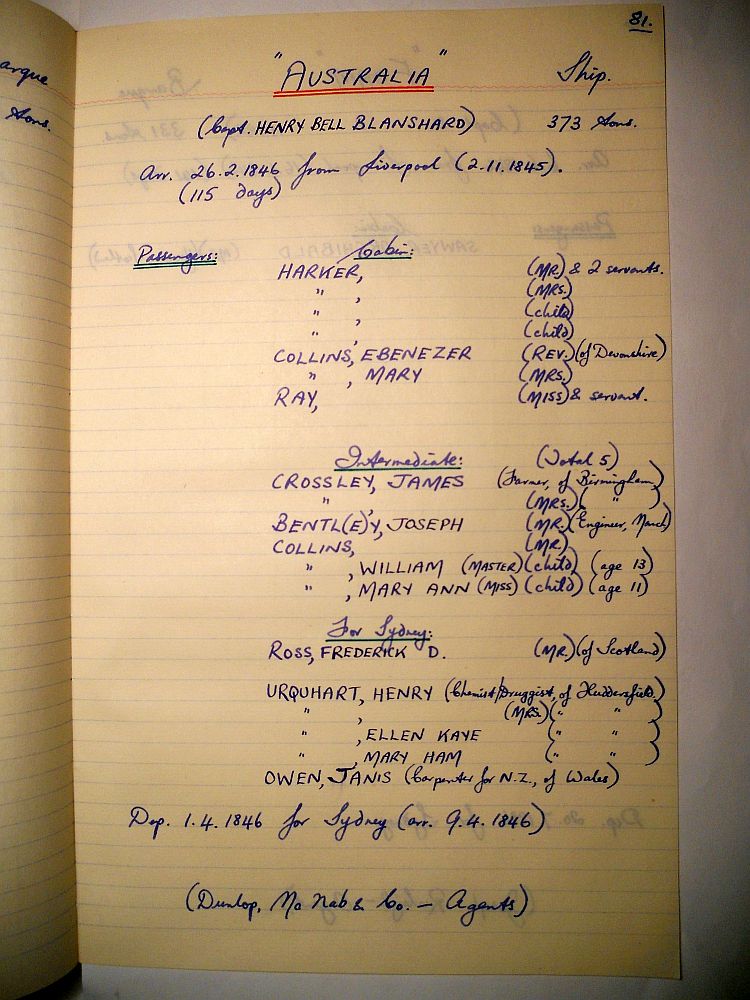 81.
arque
"AUSTRALIA" Ship.
Tons.
(Capt. HENRY BELL BLANSHARD) 373 Tons.
Arr. 26.2.1846 from Liverpool (2.11.1845).
(115 days)
Passengers: Cabin:
HARKER, (MR.) & 2 servants.
" , (MRS.)
" , (child)
" , (child)
COLLINS, EBENEZER (REV.) (of Devonshire)
" , MARY (MRS.)
RAY, (MISS) & servant.
Intermediate: (Total 5)
CROSSLEY, JAMES (Farmer, of Birmingham)
" , (MRS.) ( " )
BENTL(E)Y, JOSEPH (MR.) (Engineer, March)
COLLINS, (MR.)
" , WILLIAM (MASTER) (child) (age 13)
" , MARY ANN (MISS) (child) (age 11)
For Sydney:
ROSS, FREDERICK D. (MR.) (of Scotland)
URQUHART, HENRY (Chemist/Druggist, of Huddersfield)
" , (MRS.) ( " " )
" , ELLEN KAYE ( " " )
" , MARY HAM ( " " )
OWEN, JANIS (Carpenter for N.Z., of Wales)
Dep. 1.4.1846 for Sydney (arr. 9.4.1846)
(Dunlop, McNab & Co. – Agents)